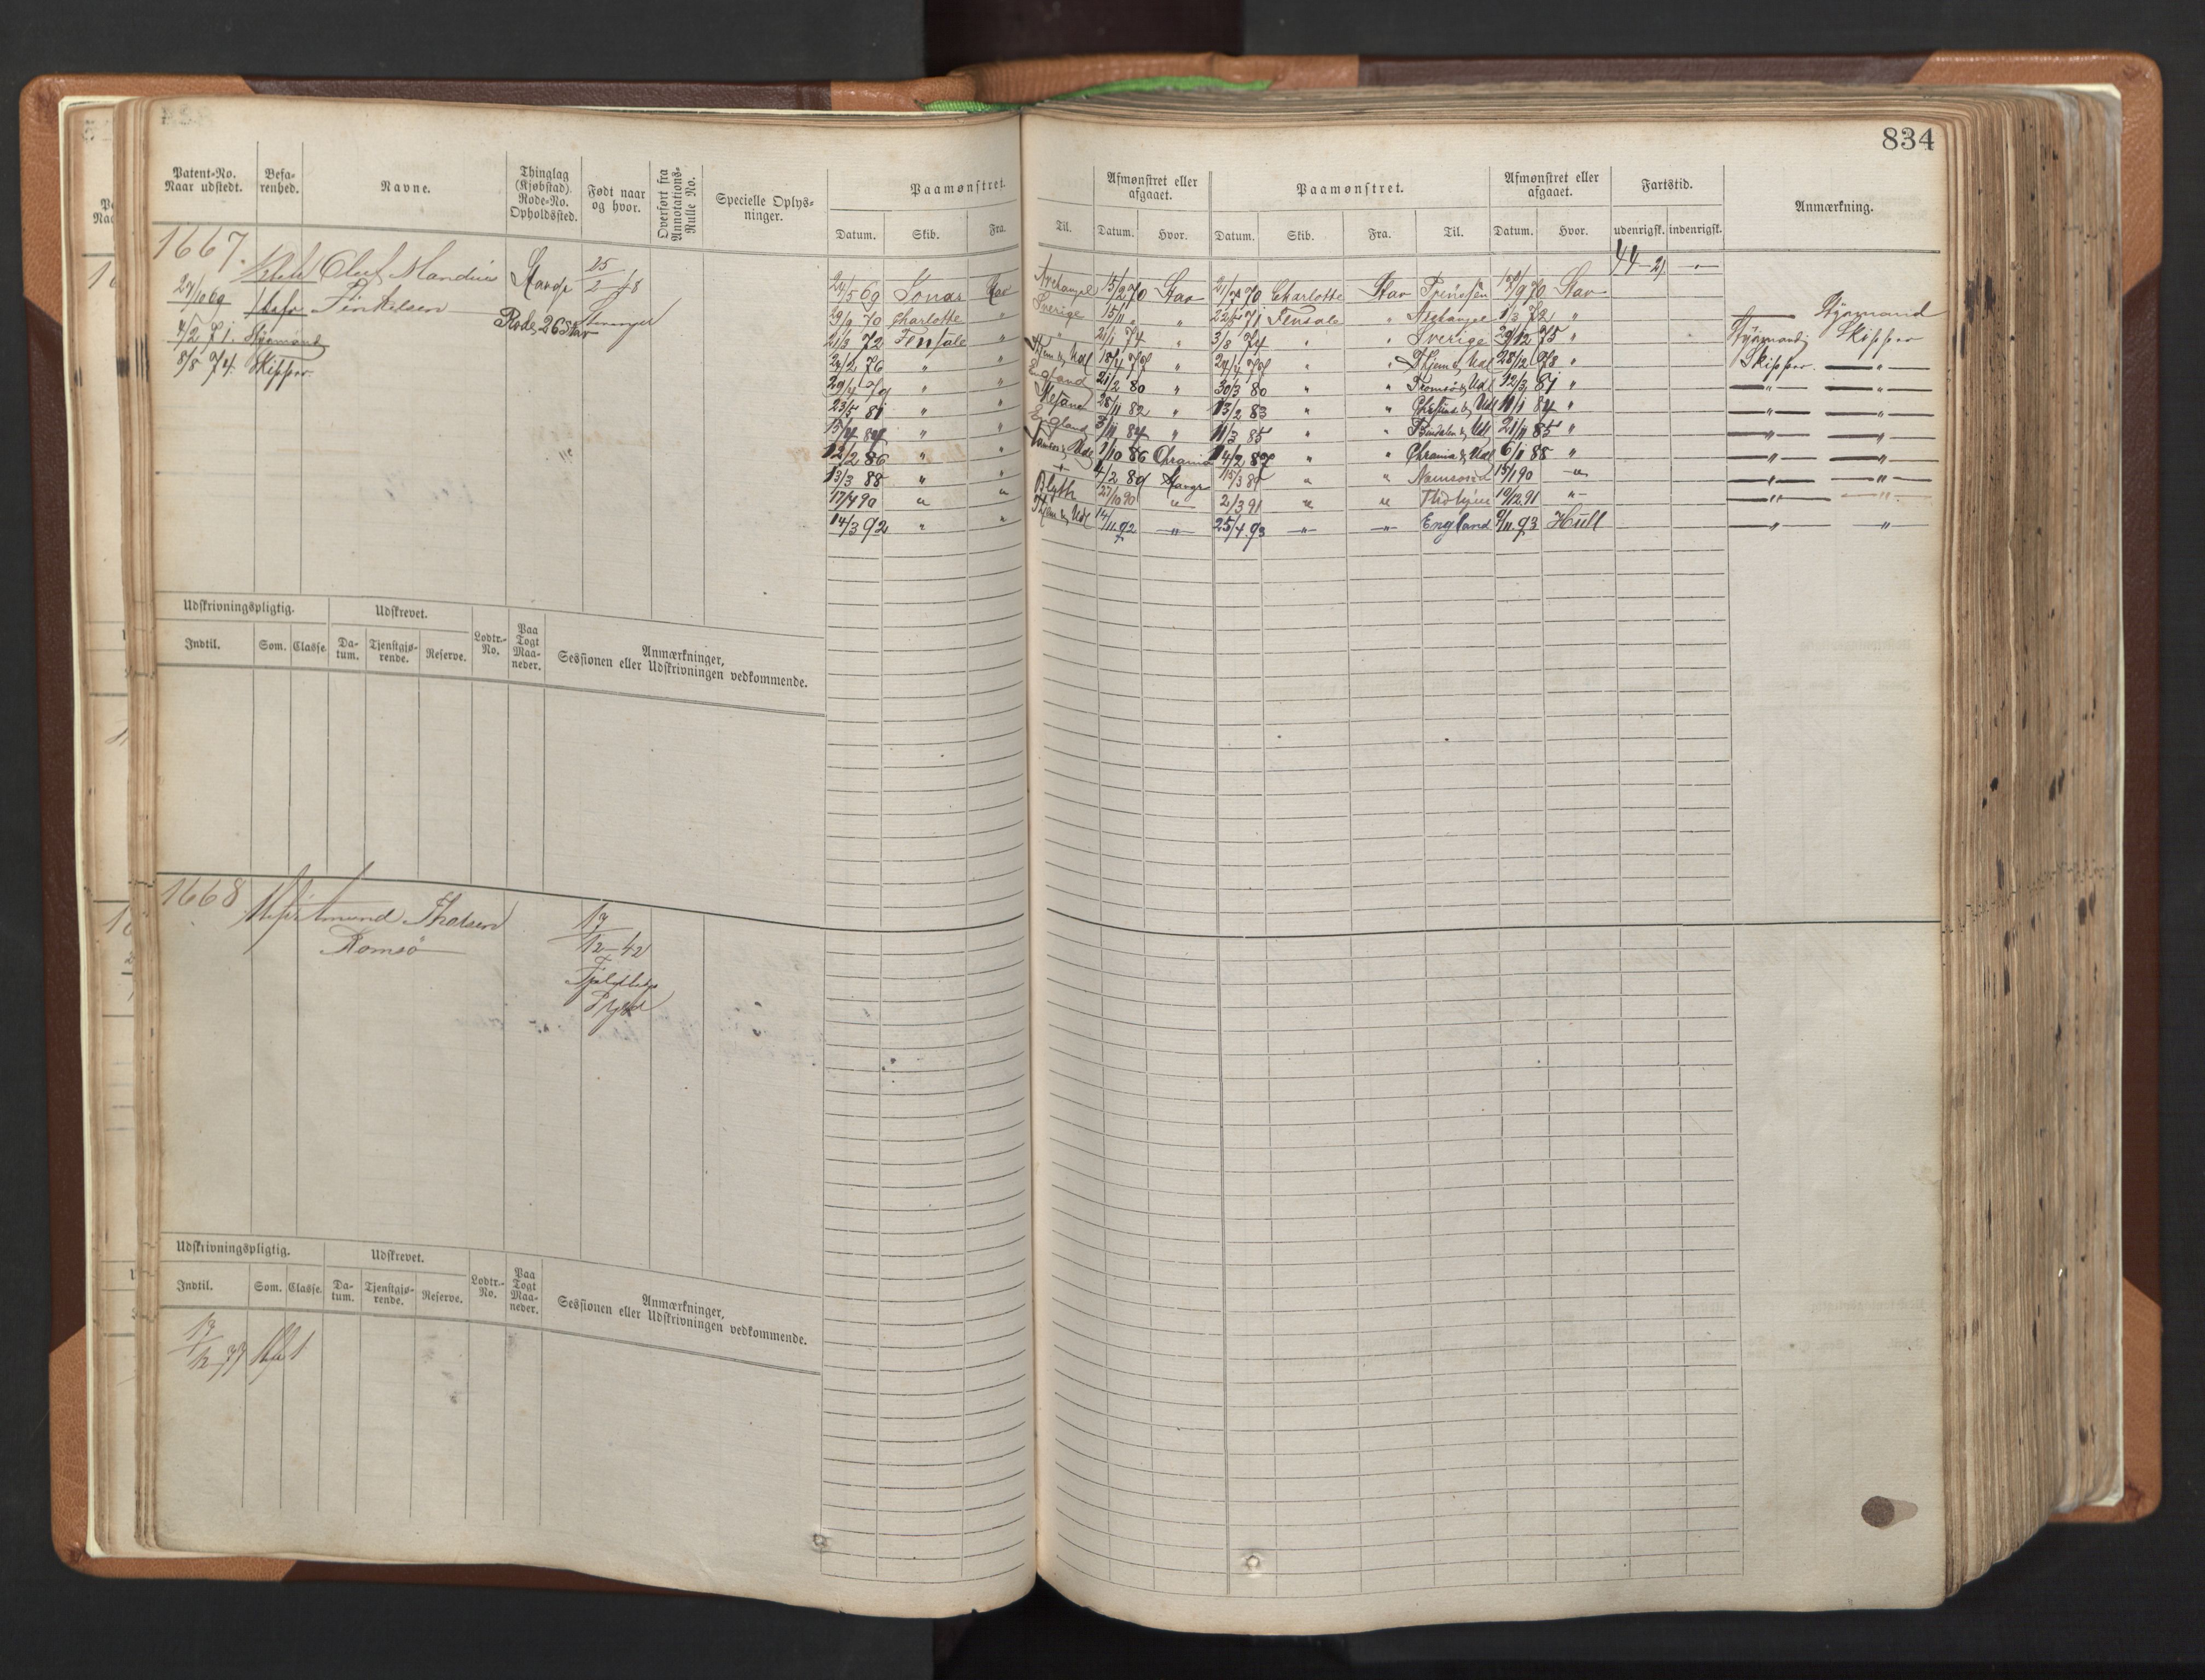 834
Patent-No. Naar udstedt.
Befa-renhed.
Navne.
Thinglag (Kjøbstad). Rode-No. Opholdssted.
Født naar og hvor.
Overført fra Annotations-Rulle No.
Specielle Oplys-ninger.
Paamønstret.
Datum. Skib. Fra. Til.
Afmønstret eller afgaaet.
Datum. Hvor.
Paamønstret.
Datum. Skib. Fra. Til.
Afmønstret eller afgaaet.
Datum. Hvor.
Fartstid.
udenrigsk. indenrigsk.
Anmærkning.
1667.
Oluf Mandius
Stavgr
25/2 48
27/10 69
Rode 26 Stav
Stavanger
4/2 71. Styrmand
8/8 74. Skipper.
44 - 21
24/5 69 Jonas Stav Archangel 15/2 70 Stav 21/7 70 Charlotte Stav 70 Stav
29/9 70 Charlotte " Sverige 15/11 " " 71 Fensale " Archangel 1/3 72 " Styrmand
21/3 72 Fensale " " 21/1 74 " 3/8 74 " " Sverige 29/12 75 " Styrmand; Skipper
24/2 76 " " Thjem & Udl " " " Thjem & Udl 28/12 78 " Skipper. — " —
" " England 21/2 80 " 30/3 80 " " Tromsø & Udl 12/3 81 " — " — — " —
23/5 81 " " 28/11 82 " 13/2 83 " " & Udl 11/1 84 " — " — — " —
15/4 84 " " England 84 " 11/3 85 " " & Udl 21/11 85 " — " — — " —
12/2 86 " " & Udl 1/10 86 Chrania 14/2 87 " " Chrania & Udl 6/1 88 " — " — — " —
13/3 88 " " + 4/2 89 Stavgr 15/3 89 " " Namsos 15/1 90 — " — " — — " —
17/4 90 " " Blyth 27/10 90 " 2/3 91 " " 19/12 91 " — " — — " —
14/3 92 " " Thjem & Udl 14/11 92 — " — 25/4 93 — " — — " — England 9/11 93 Hull — " — "
Udskrivningspligtig.
Indtil. Som. Classe.
Udskrevet.
Da-tum. Tjenstgjø-rende. Reserve.
Lodtr.-No.
Paa Togt Maa-neder.
Anmærkninger, Sessionen eller Udskrivningen vedkommende.
1668
Amund Tholsen
Romsø
17/12 - 42
Udskrivningspligtig.
Indtil. Som. Classe.
Udskrevet.
Da-tum. Tjenstgjø-rende. Reserve.
Lodtr.-No.
Paa Togt Maa-neder.
Anmærkninger, Sessionen eller Udskrivningen vedkommende.
17/12 77
1